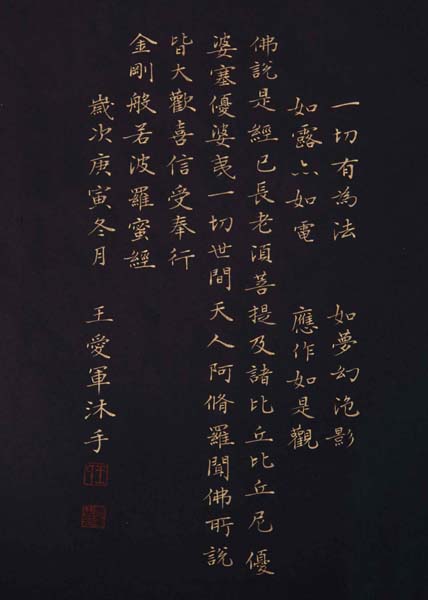 一切有為法　如夢幻泡影
如露亦如電　應作如是觀
佛說是經已長老須菩提及諸比丘比丘尼優
婆塞優婆夷一切世間天人阿脩羅聞佛所說
皆大歡喜信受奉行
金剛般若波羅蜜經
歲次庚寅冬月　王愛軍沐手